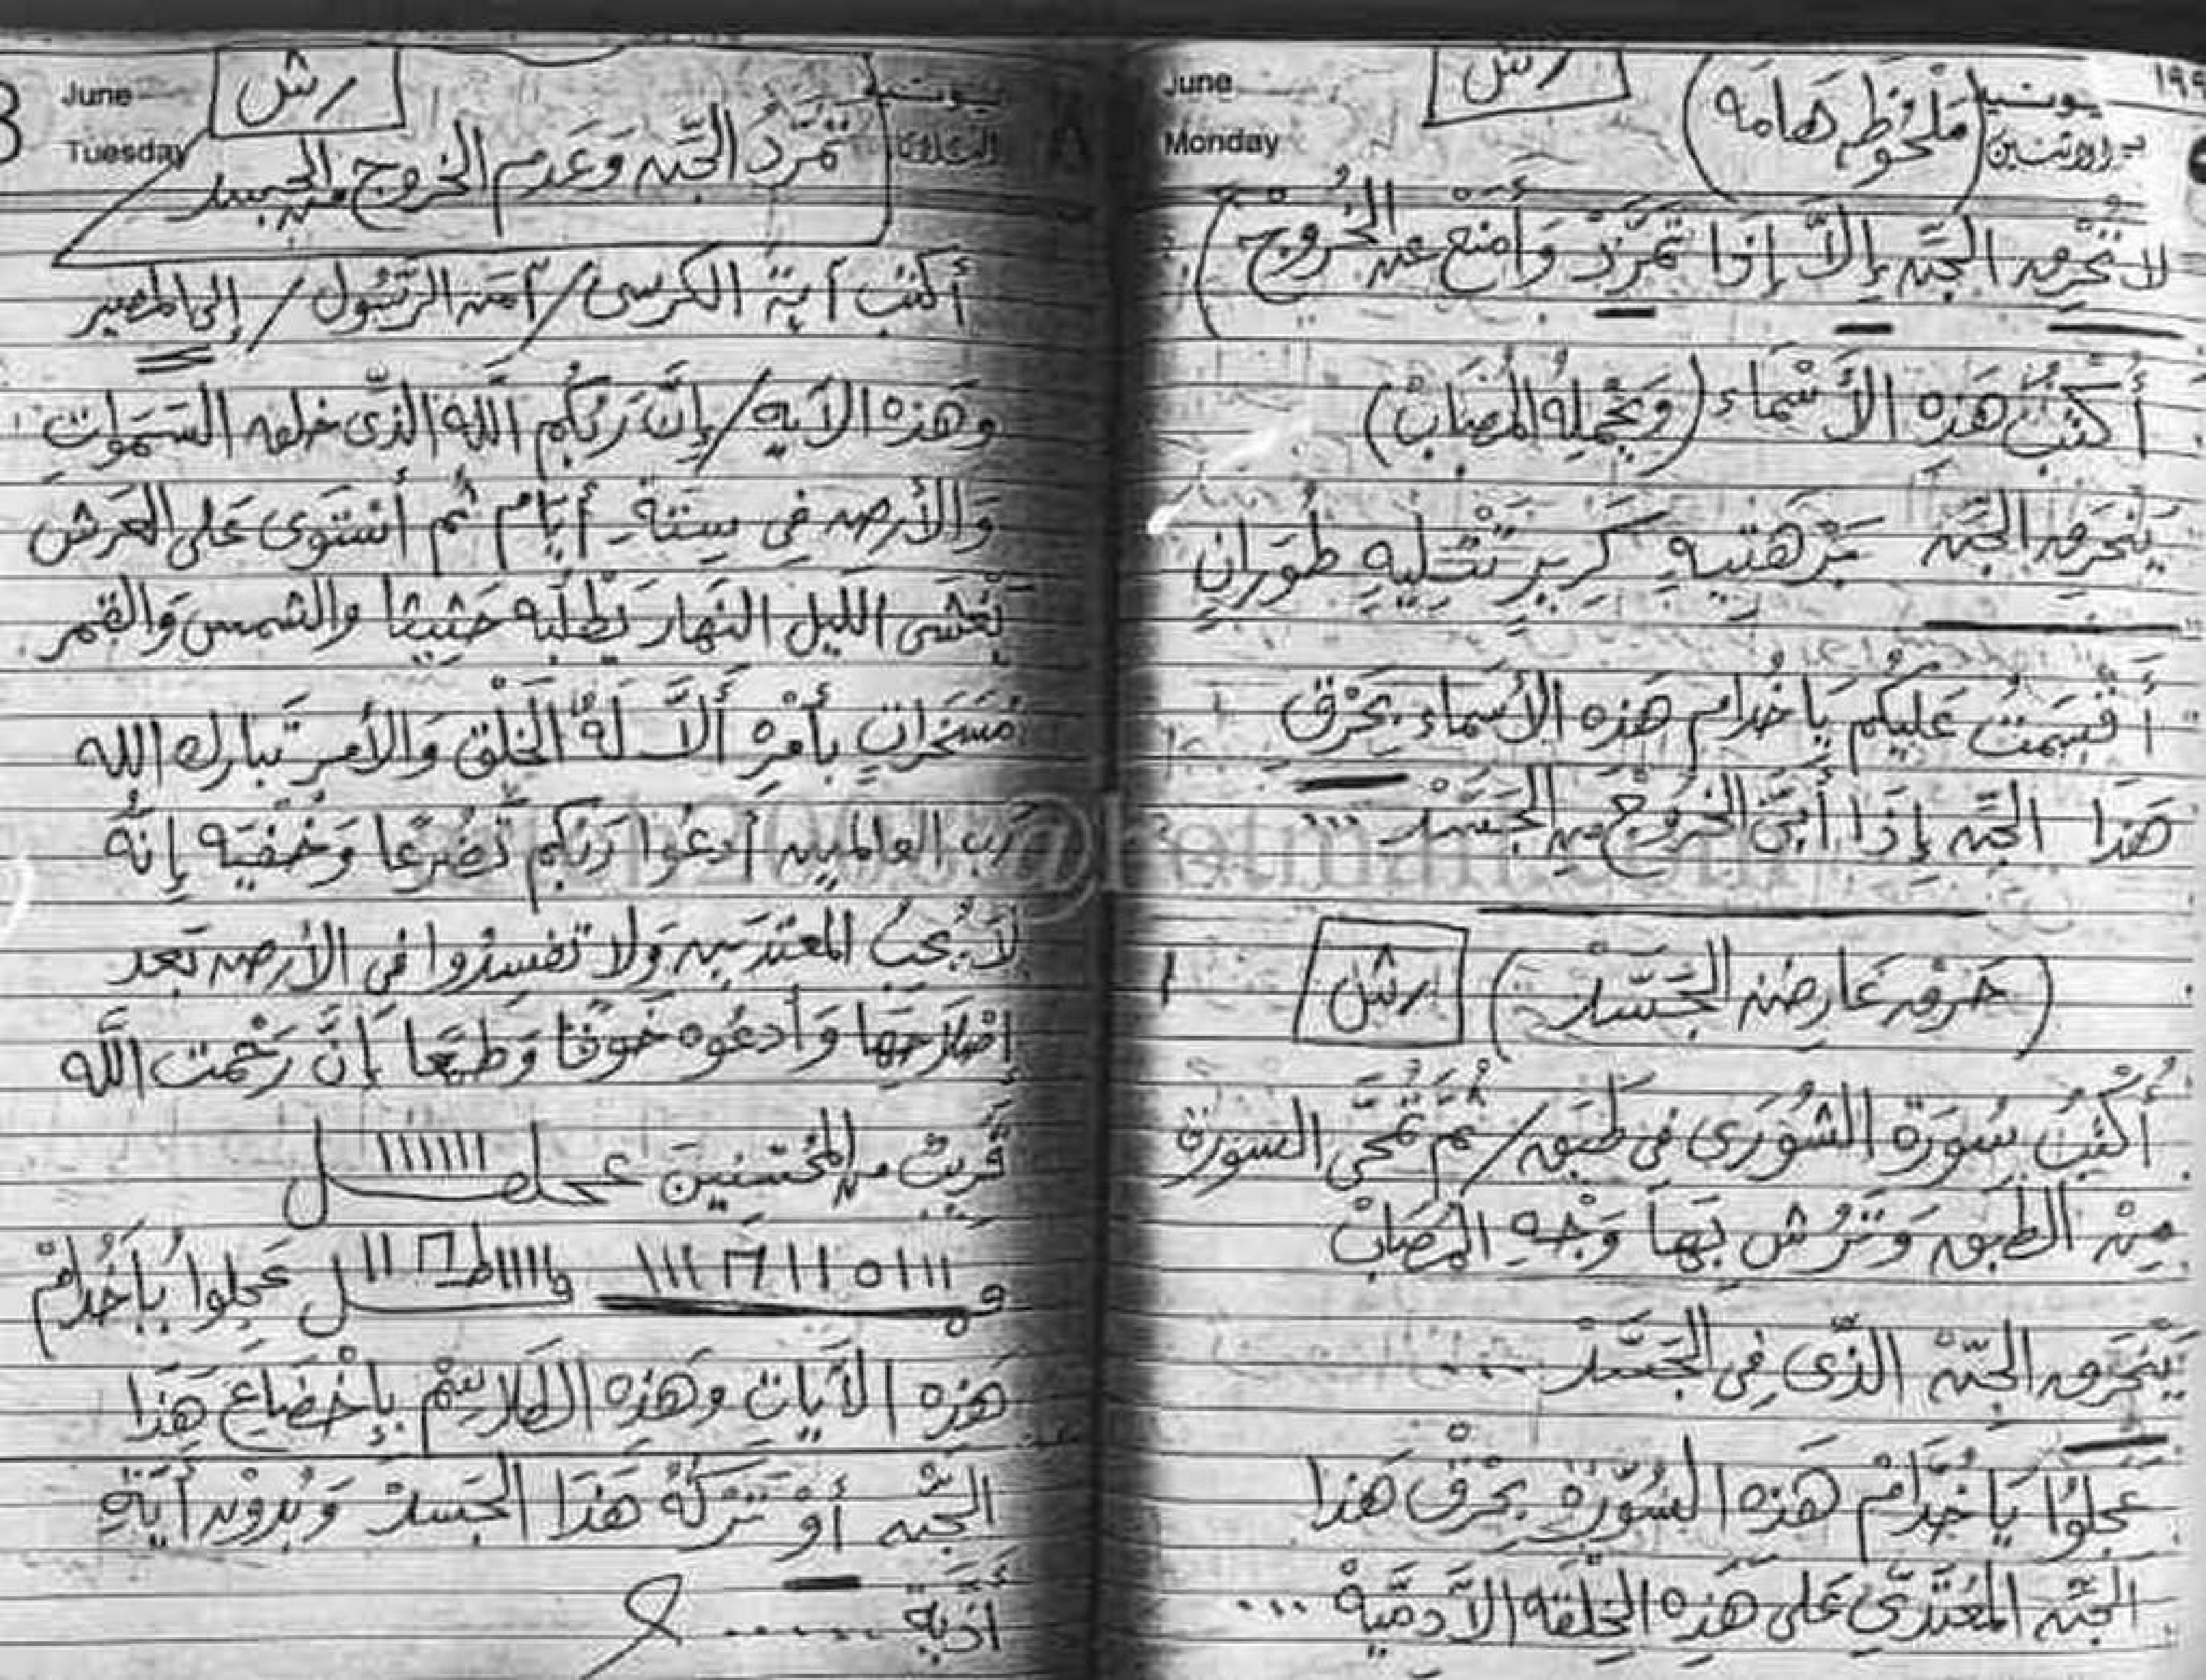 June
Monday
يونيه
الاثنين
١٩٩
رش
(ملحوظه هَامَه)
لا تحرق الجن إلاَّ إذا تمرَّدْ وَأمنع عن الخُروْج)
أَكتبُ هَذِهِ الأَسْمَاء (وَيَحْمِلهُ المُصَابْ)
يَنحَرِق الجن بَرْهَتيهٍ كَرِيرٍ تَتْليهٍ طَوَرانٍ
أَقْسَمتُ عَليكُم يَا خُدام هَذِهِ الأسماءِ بحَرْق
هَذا الجن إذا أبَىَ الخروجْ من الجَسَدْ ...
(حَرق عَارِض الجَسَدْ) رش
أُكْتبُ سُورَة الشُورَى فى طَبَق / ثُم تُمحَى السورة
مِنْ الطَبق وَتُرش بَهَا وَجْهِ المُصَابْ
يَنحَرق الجنْ الذّى فِى الجَسَدْ ....
عَجلوُا يَا خُدَّامْ هَذه السُوّرةِ بحَرْق هَذا
الجّن المُعتَدّىِ عَلى هَذِه الخِلقه الآدميَّةْ ...
June
Tuesday
يونيه
الثلاثاء
رش
تمَرّدُ الجن وَعَدم الخروج من الجسد
أكتب آية الكرسى / آمن الرَسُول / إلى المصير
وَهَذه الآيه / إنَّ رَبَكُم اللَّهُ الذّى خلق السَمَوات
وَالأرض فى سِتَةِ أيَام ثُم أستَوى عَلى العَرش
يغشى الليل النَهار يَطْلبَه حَثِيثا والشمس وَالقمر
مُسَخَراتٍ بأمْرِهِ أَلاَ لَهُ الخَلْق وَالأمر تَبارك الله
رَب العالمين أدعُوا رَبَكم تَضُرعًا وَخُفيَه إنهُ
لاَ يُحِبُ المعتَدَين وَلا تفسِدُوا فى الأرض بَعد
اصْلاَحِهَا وَأدعُوه خَوفًا وَطمَعَا إنَّ رَحْمت اللَّه
قَريبٌ من المُحْسنينَ
عَجلوا يَا خُدامْ
هَذه الآيَات وهَذِه الطلاسِمْ بإخْضَاع هَذَا
الجّن أوْ تَرَكهُ هَذَا الجَسدْ وَبُدوْن أيَةِ
أذَيَّة ......